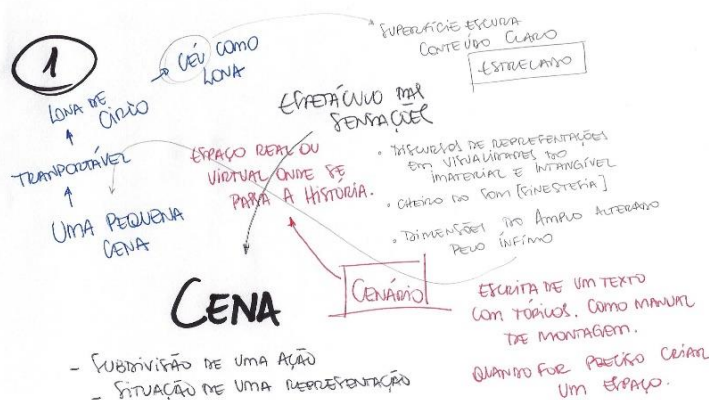 1
CÉU COMO
LONA
LONA DE
CIRCO
TRANPORTÁVEL
UMA PEQUENA
CENA
SUPERFÍCIE ESCURA
CONTEÚDO CLARO
ESTRELADO
ESPETÁCULO DAS
SENSAÇÕES
ESPAÇO REAL OU
VIRTUAL ONDE SE
PASSA A HISTORIA.
• DISCURSOS DE REPRESENTAÇÕES
EM VISUALIDADES DO
IMATERIAL E INTANGÍVEL
• CHEIRO DO SOM [SINESTESIA]
• DIMENSÕES DO AMPLO ALTERADO
PELO ÍNFIMO
CENÁRIO
CENA
- SUBDIVISÃO DE UMA AÇÃO
- SITUAÇÃO DE UMA REPRESENTAÇÃO
ESCRITA DE UM TEXTO
COM TÓPICOS. COMO MANUAL
DE MONTAGEM.
QUANDO FOR PRECISO CRIAR
UM ESPAÇO.